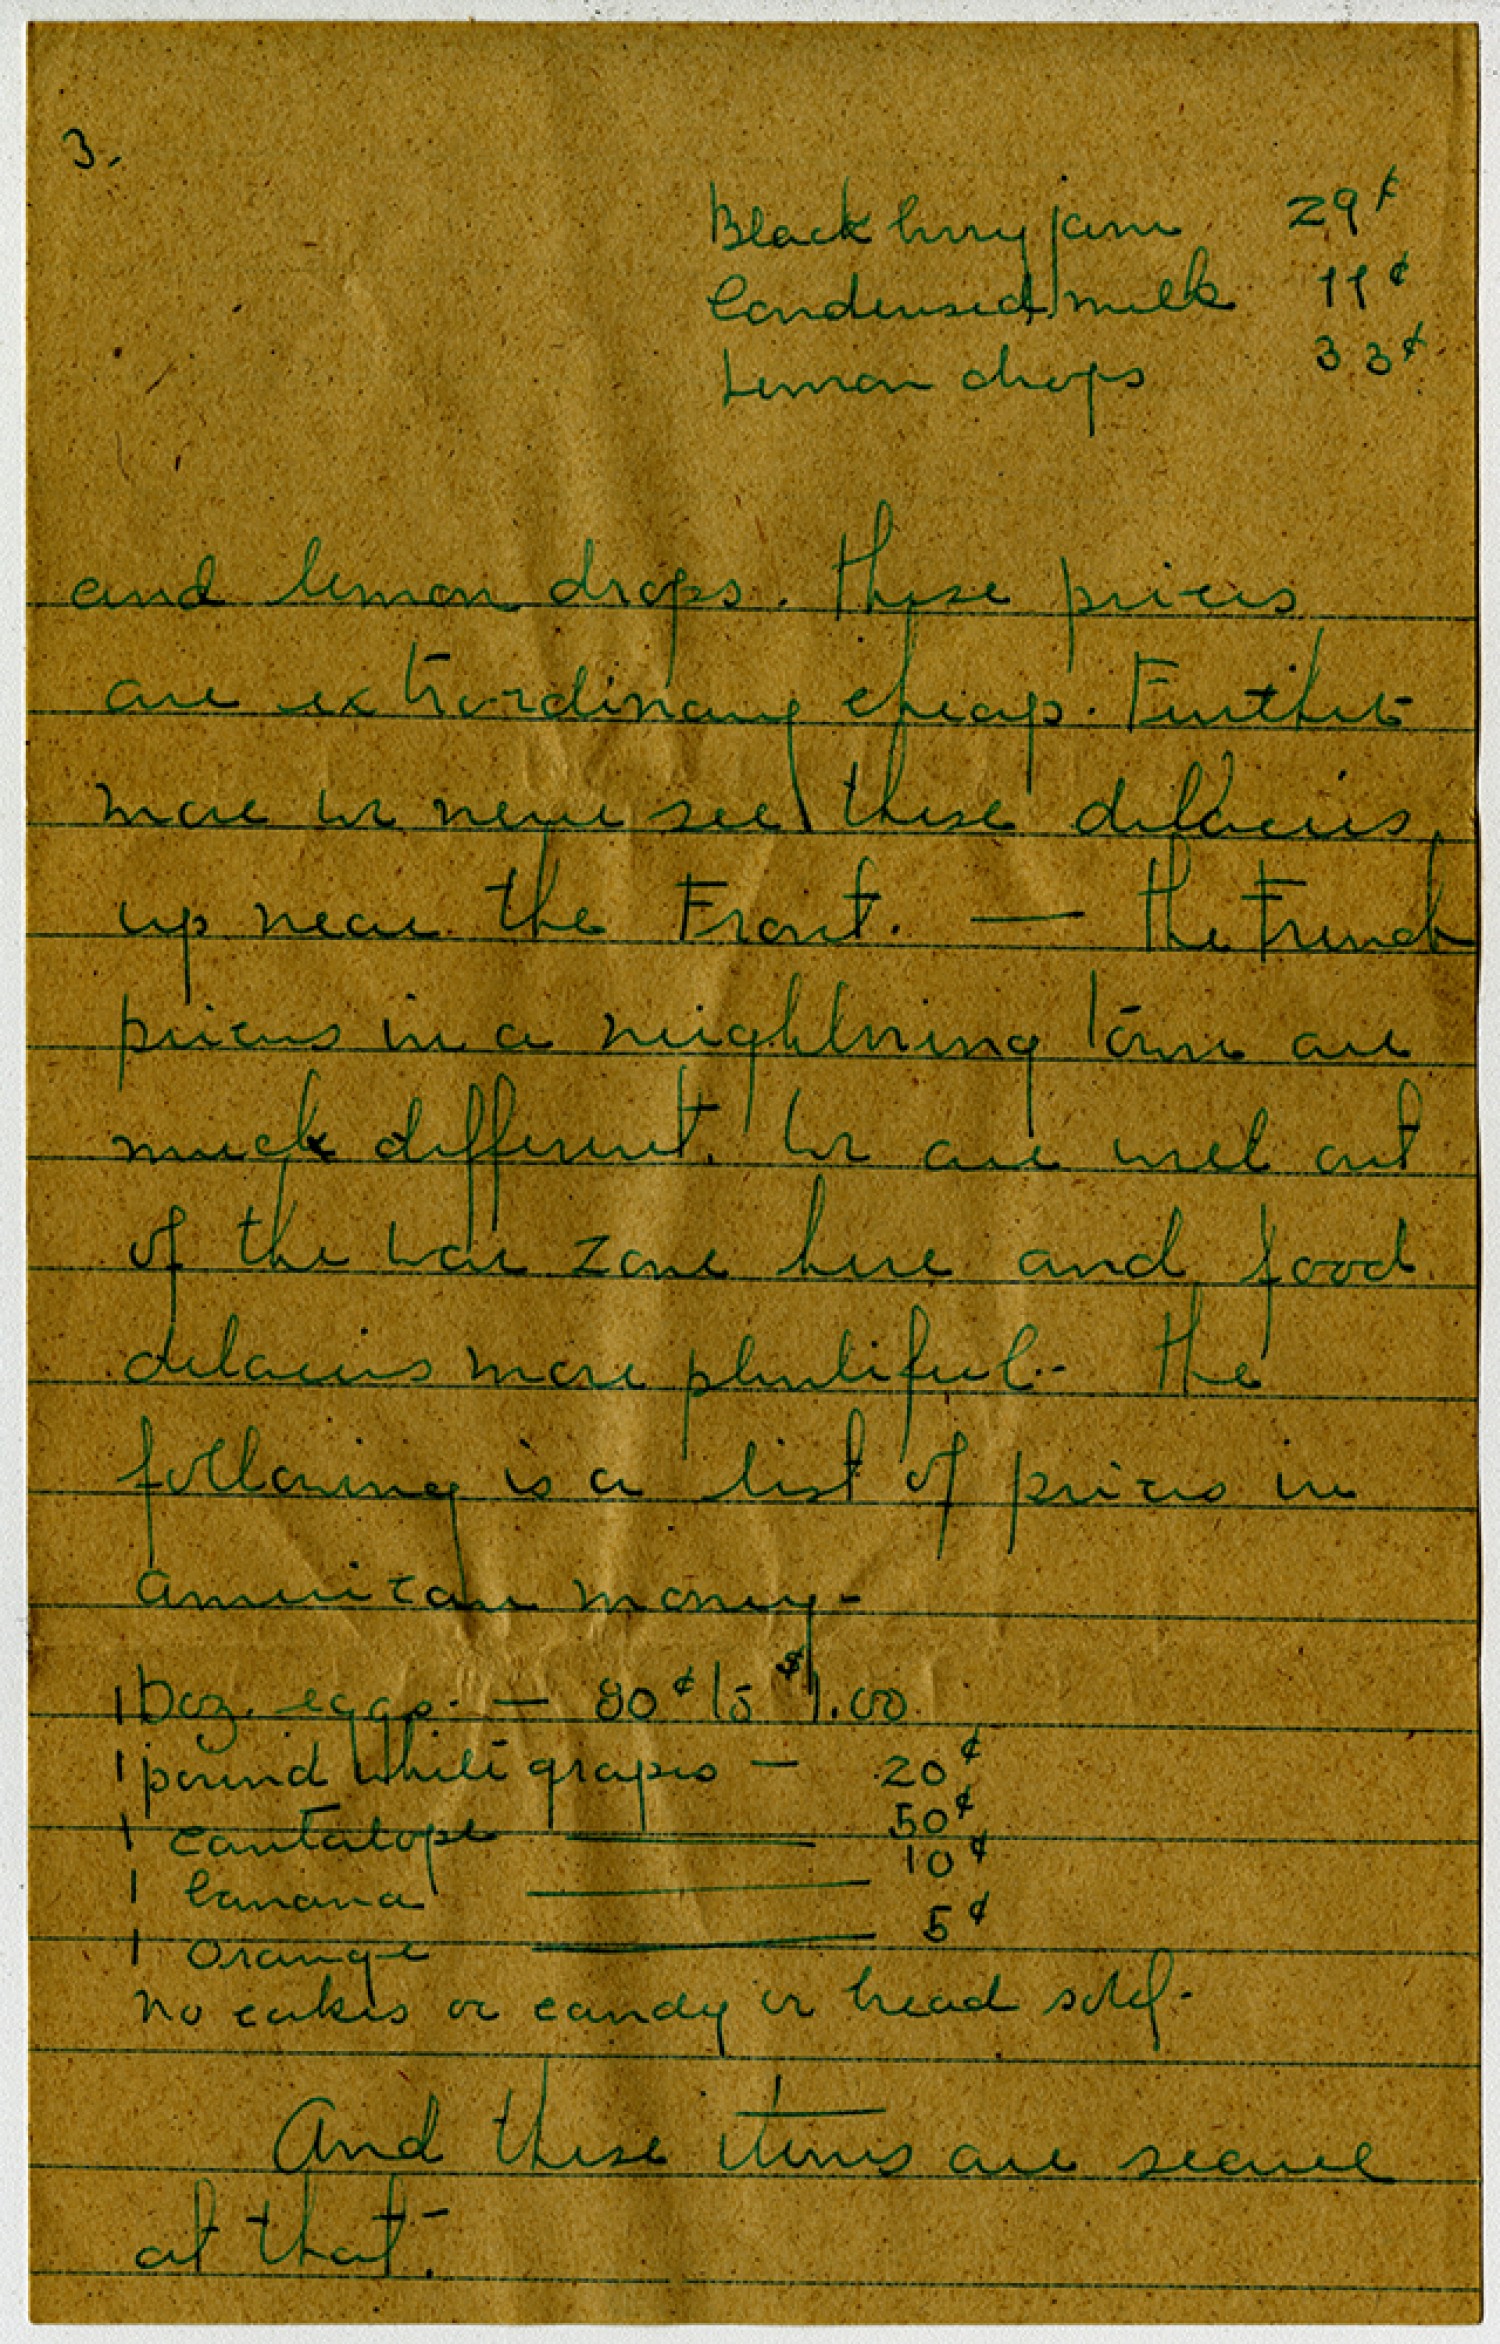 3.
Blackberry jam 29¢
Condensed milk 11¢
Lemon drops 33¢
and lemon drops. These prices
are extrordinary cheap. Further
more we never see these delacies
up near the Front. — The French
prices in a neighboring town are
much different. We are well out
of the war zone here and food
delacies more plentiful. The
following is a list of prices in
american money-
1 Doz. eggs. — 80¢ to $1.00
1 pound white grapes — 20¢
1 cantalope — 50¢
1 banana — 10¢
1 orange — 5¢
No cakes or candy or bread sold.
And these items are scarce
at that.-